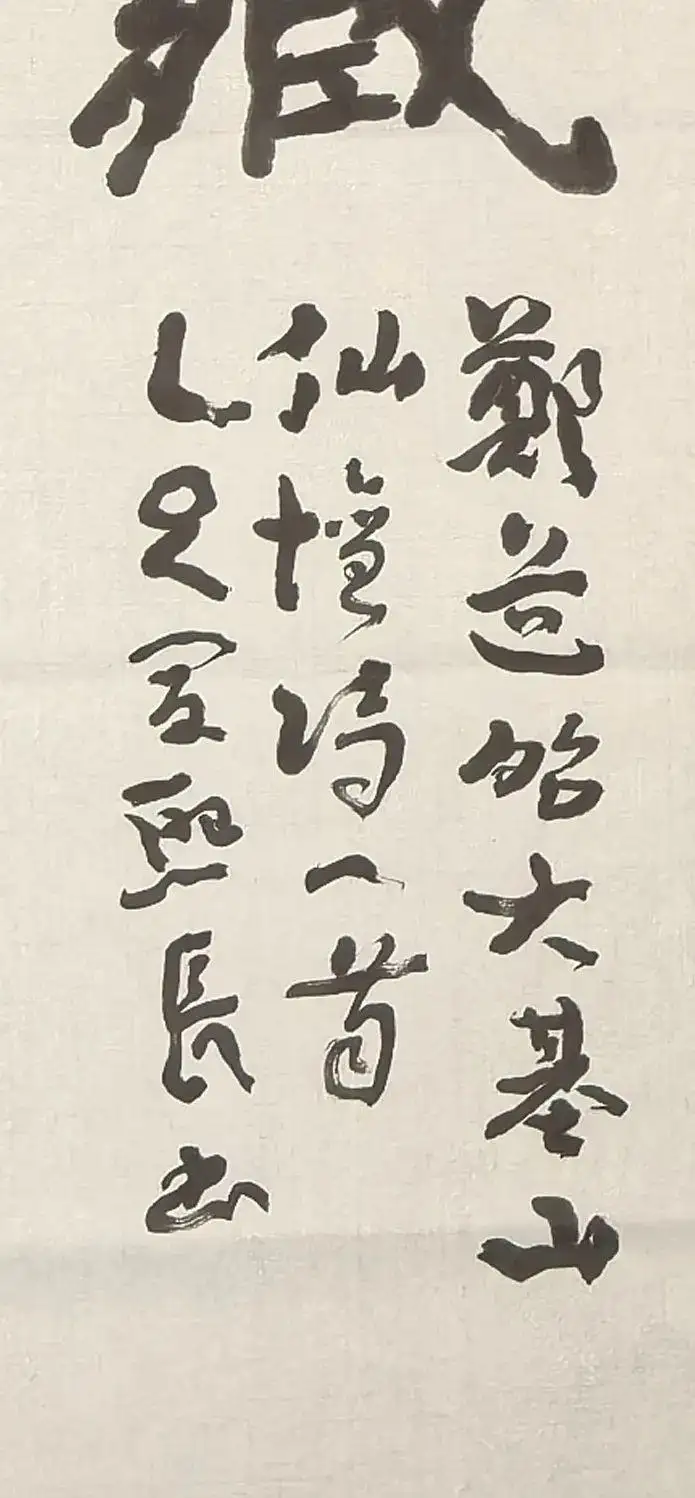 鄭道昭大基山
仙壇詩一首
乙巳夏熙長書